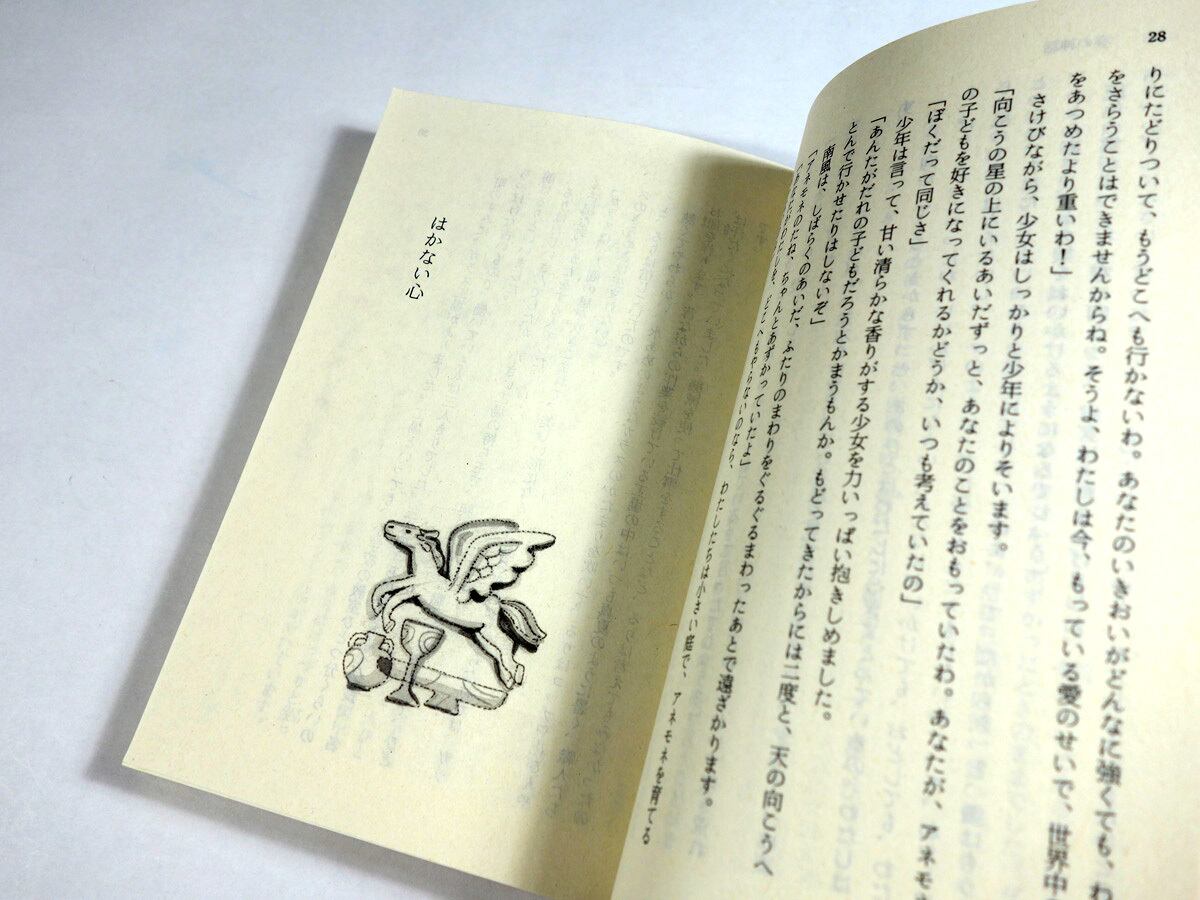 28
りにたどりついて、もうどこへも行かないわ。あなたのいきおいがどんなに強くても、わ
をさらうことはできませんからね。そうよ、わたしは今、もっている愛のせいで、世界中
をあつめたより重いわ！」
さけびながら、少女はしっかりと少年によりそいます。
「向こうの星の上にいるあいだずっと、あなたのことをおもっていたわ。あなたが、アネモネ
の子どもを好きになってくれるかどうか、いつも考えていたの」
「ぼくだって同じさ」
少年は言って、甘い清らかな香りがする少女を力いっぱい抱きしめました。
「あんたがだれの子どもだろうとかまうもんか。もどってきたからには二度と、天の向こうへ
とんで行かせたりはしないぞ」
南風は、しばらくのあいだ、ふたりのまわりをぐるぐるまわったあとで遠ざかります。
「アネモネのたね、ちゃんとあずかっていたよ」
どこへもやらないのなら、わたしたちは小さい庭で、アネモネを育てる
はかない心